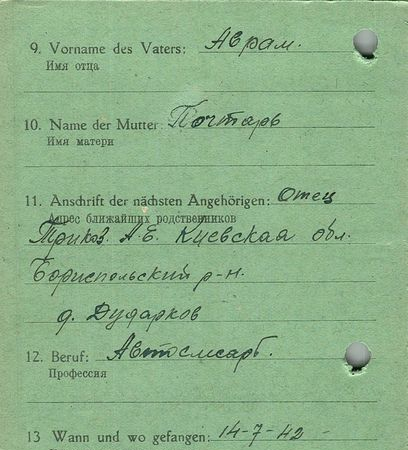 9. Vorname des Vaters: Аврам.
Имя отца
10. Name der Mutter: Почтарь
Имя матери
11. Anschrift der nächsten Angehörigen: Отец
Адрес ближайших родственников
А. Е. Киевская обл.
Бориспольский р-н.
д. Дударков
12. Beruf: Автослесарь.
Профессия
13 Wann und wo gefangen: 14-7-42 -